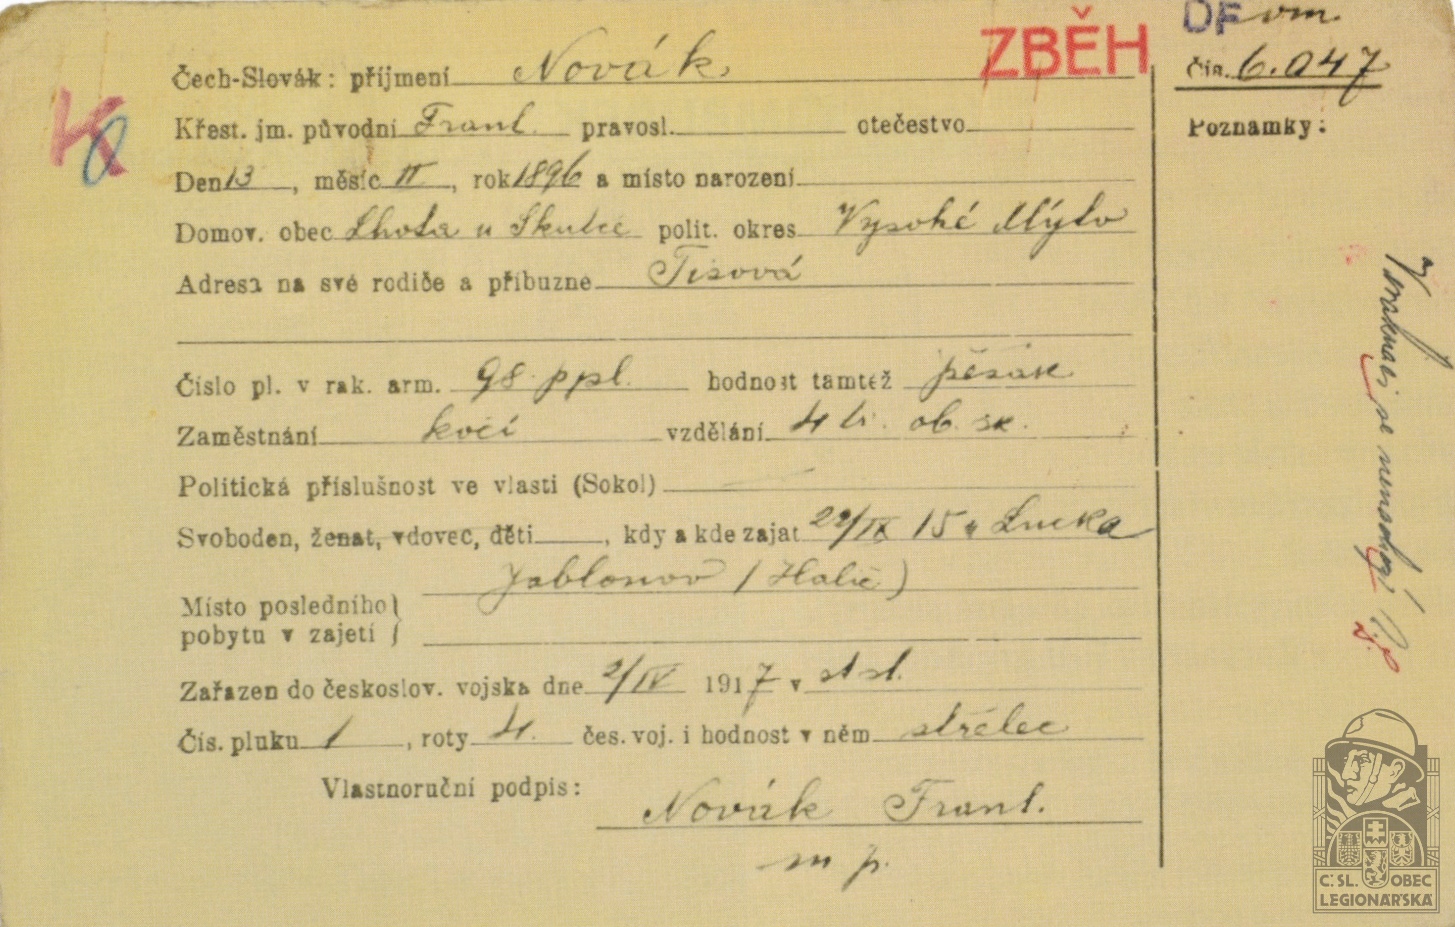 ZBĚH
DF vm.
Čech-Slovák: příjmení Novák
Čís. 6.047
Křest. jm. původní Frant. pravosl. otečestvo
Poznamky:
Den 13, měsíc II, rok 1896 a místo narození
Domov. obec Lhota u Skutče polit. okres Vysoké Mýto
Adresa na své rodiče a příbuzné Tisová
Číslo pl. v rak. arm. 98 p pl. hodnost tamtéž pěšák
Zaměstnání kočí vzdělání 4 tř. ob. šk.
Politická příslušnost ve vlasti (Sokol)
Svoboden, ženat, vdovec, děti, kdy a kde zajat 22/IX 15 Lucka
Jablonov (Halič)
Místo posledního
pobytu v zajetí
Zařazen do českoslov. vojska dne 2/IV 1917 v
Čís. pluku 1, roty 4. čes. voj. i hodnost v něm střelec
Vlastnoruční podpis:
Novák Frant.
m p.
se nenachází
Č. SL. OBEC
LEGIONÁŘSKÁ